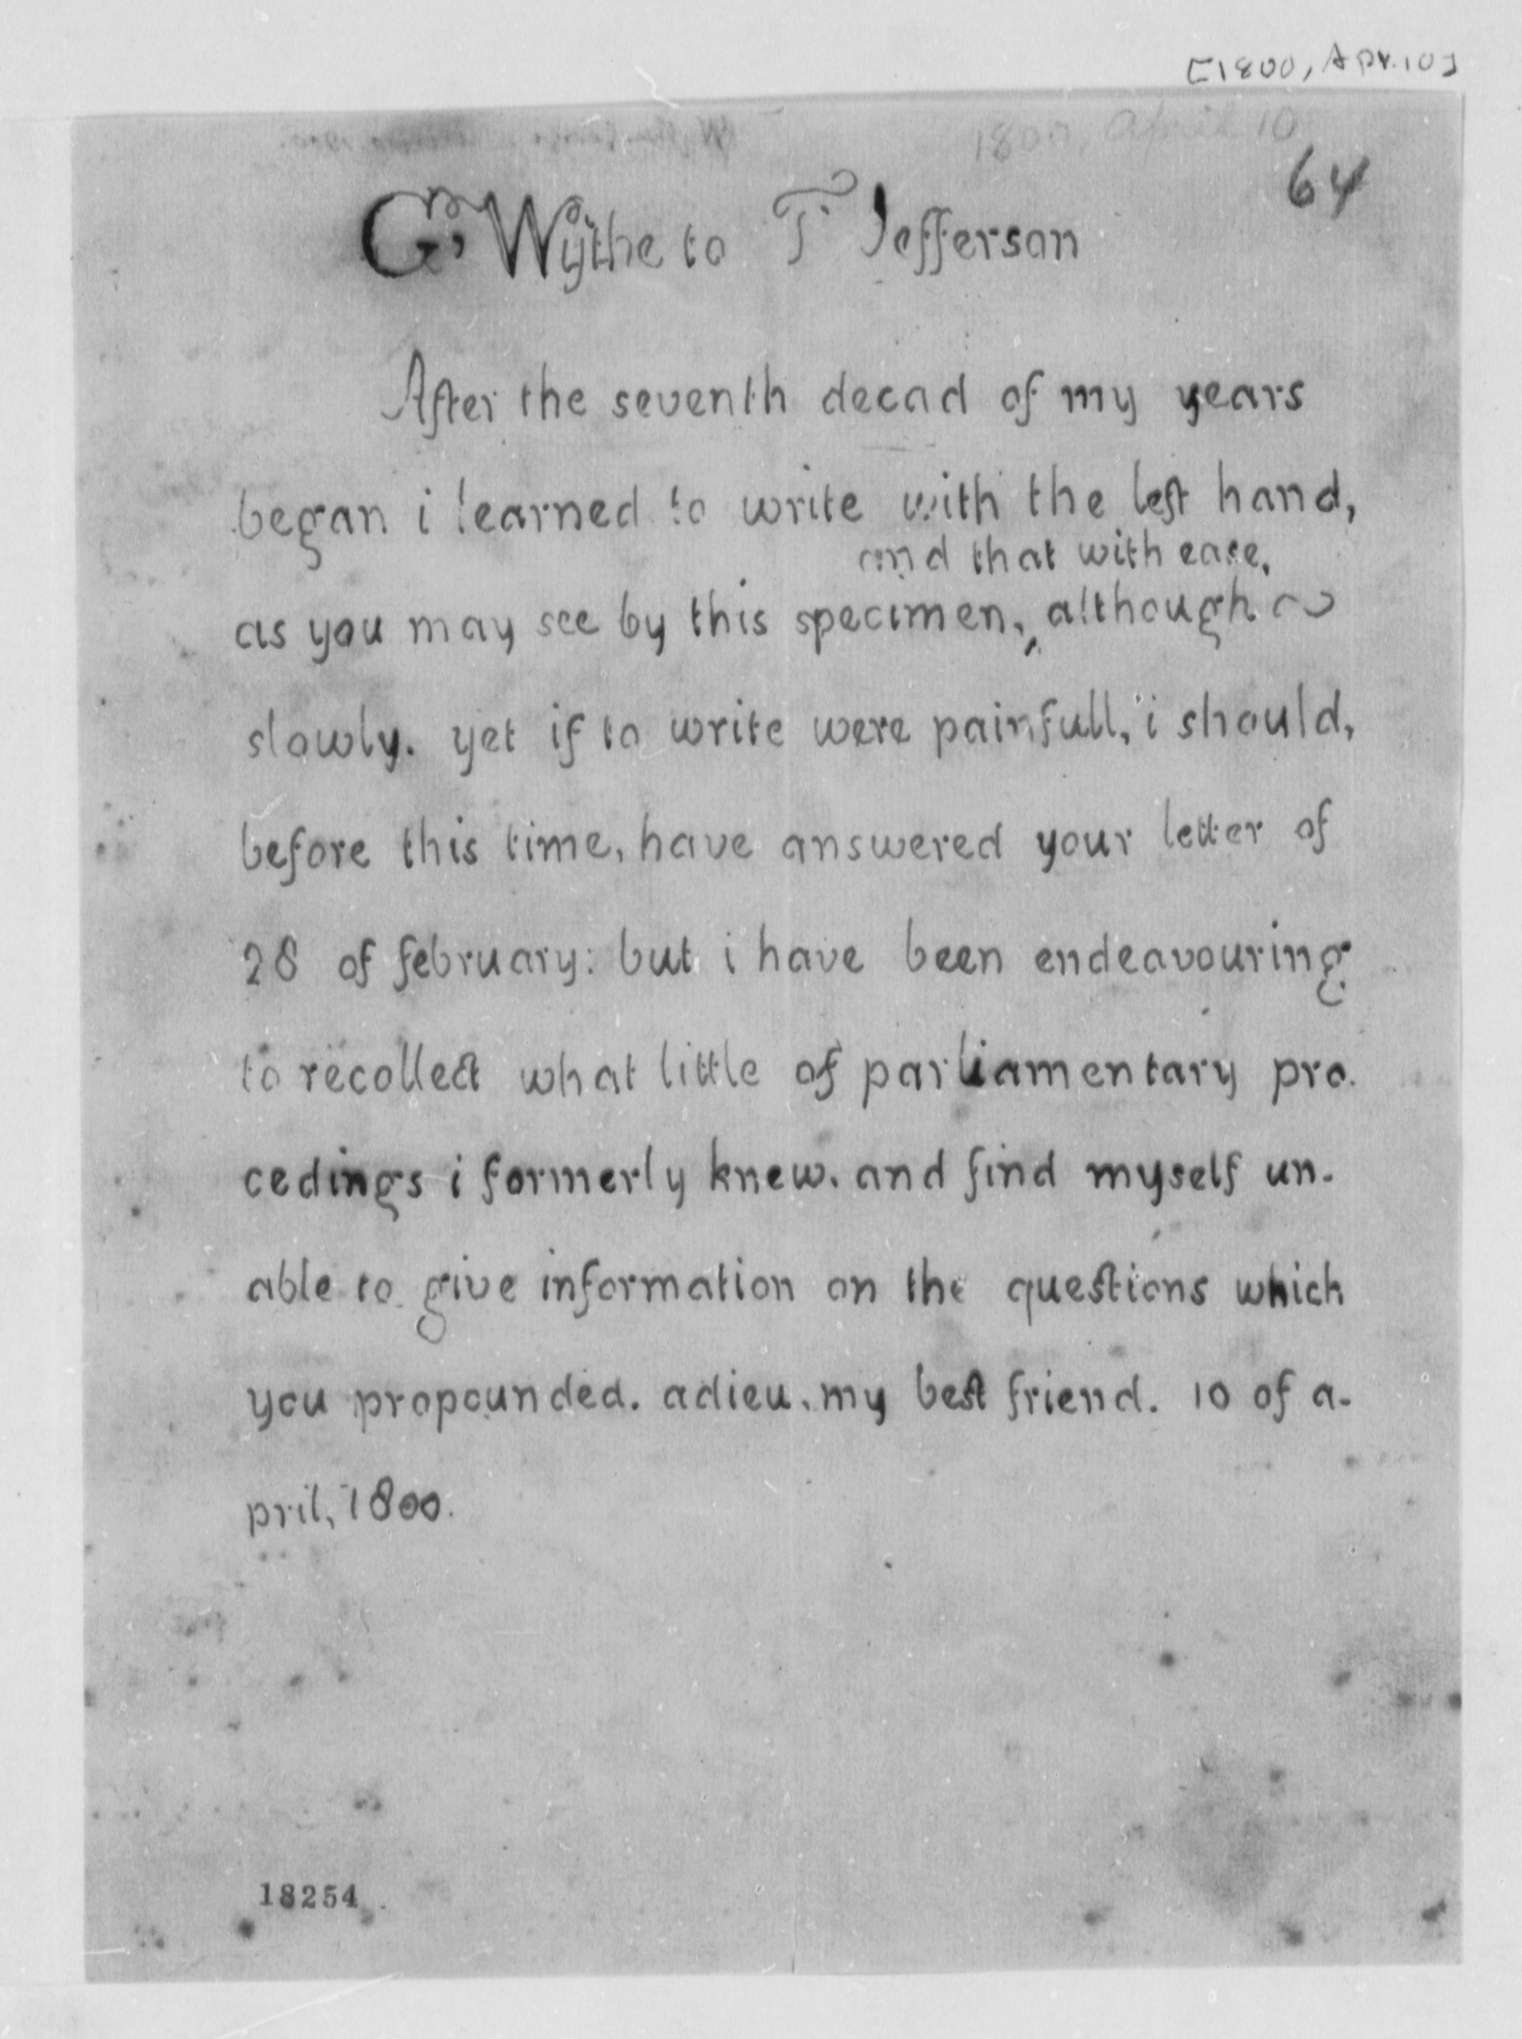 [1800, Apr. 10]
1800, April 10
64
G' Wythe to T' Jefferson
After the seventh decad of my years
began i learned to write with the left hand,
and that with ease,
as you may see by this specimen, although
slowly. yet if to write were painfull, i should,
before this time, have answered your letter of
28 of february: but i have been endeavouring
to recollect what little of parliamentary pro-
cedings i formerly knew, and find myself un-
able to give information on the questions which
you propounded. adieu, my best friend. 10 of a-
pril, 1800.
18254